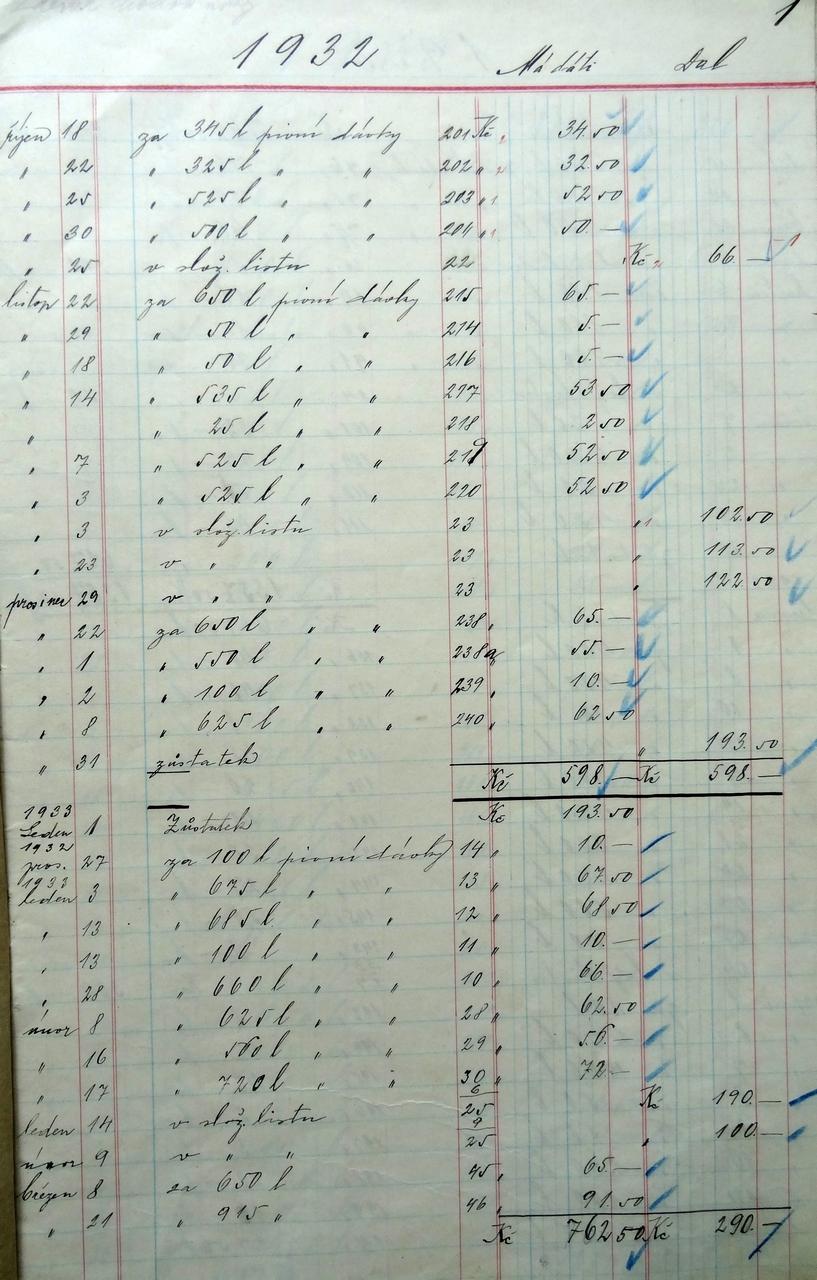 1
1932 Má dáti Dal
říjen 18 za 345 l pivní dávky 201 Kč 34.50
" 22 " 325 l " " 202 " 32.50
" 25 " 525 l " " 203 " 52.50
" 30 " 500 l " " 204 " 50.—
" 25 v slož. listu 22 Kč 66.—
listop 22 za 650 l pivní dávky 215 65.—
" 29 " 50 l " " 214 5.—
" 18 " 50 l " " 216 5.—
" 14 " 535 l " " 217 53.50
" " 25 l " " 218 2.50
" 7 " 525 l " " 219 52.50
" 3 " 525 l " " 220 52.50
" 3 v slož. listu 23 " 102.50
" 23 v " " 23 " 113.50
prosinec 29 v " " 23 " 122.50
" 22 za 650 l " " 238 " 65.—
" 1 " 550 l " " 238a 55.—
" 2 " 100 l " " 239 " 10.—
" 8 " 625 l " " 240 " 62.50
" 31 zůstatek " 193.50
Kč 598.— Kč 598.—
1933
Leden 1 Zůstatek Kč 193.50
1932
pros. 27 za 100 l pivní dávky 14 " 10.—
1933
leden 3 " 675 l " " 13 " 67.50
" 13 " 685 l " " 12 " 68.50
" 13 " 100 l " " 11 " 10.—
" 28 " 660 l " " 10 " 66.—
únor 8 " 625 l " " 28 " 62.50
" 16 " 560 l " " 29 " 56.—
" 17 " 720 l " " 30 " 72.—
leden 14 v slož. listu 6/25 Kč 190.—
únor 9 v " " 9/25 " 100.—
březen 8 za 650 l 45 " 65.—
" 21 " 915 " 46 " 91.50
Kč 762.50 Kč 290.—